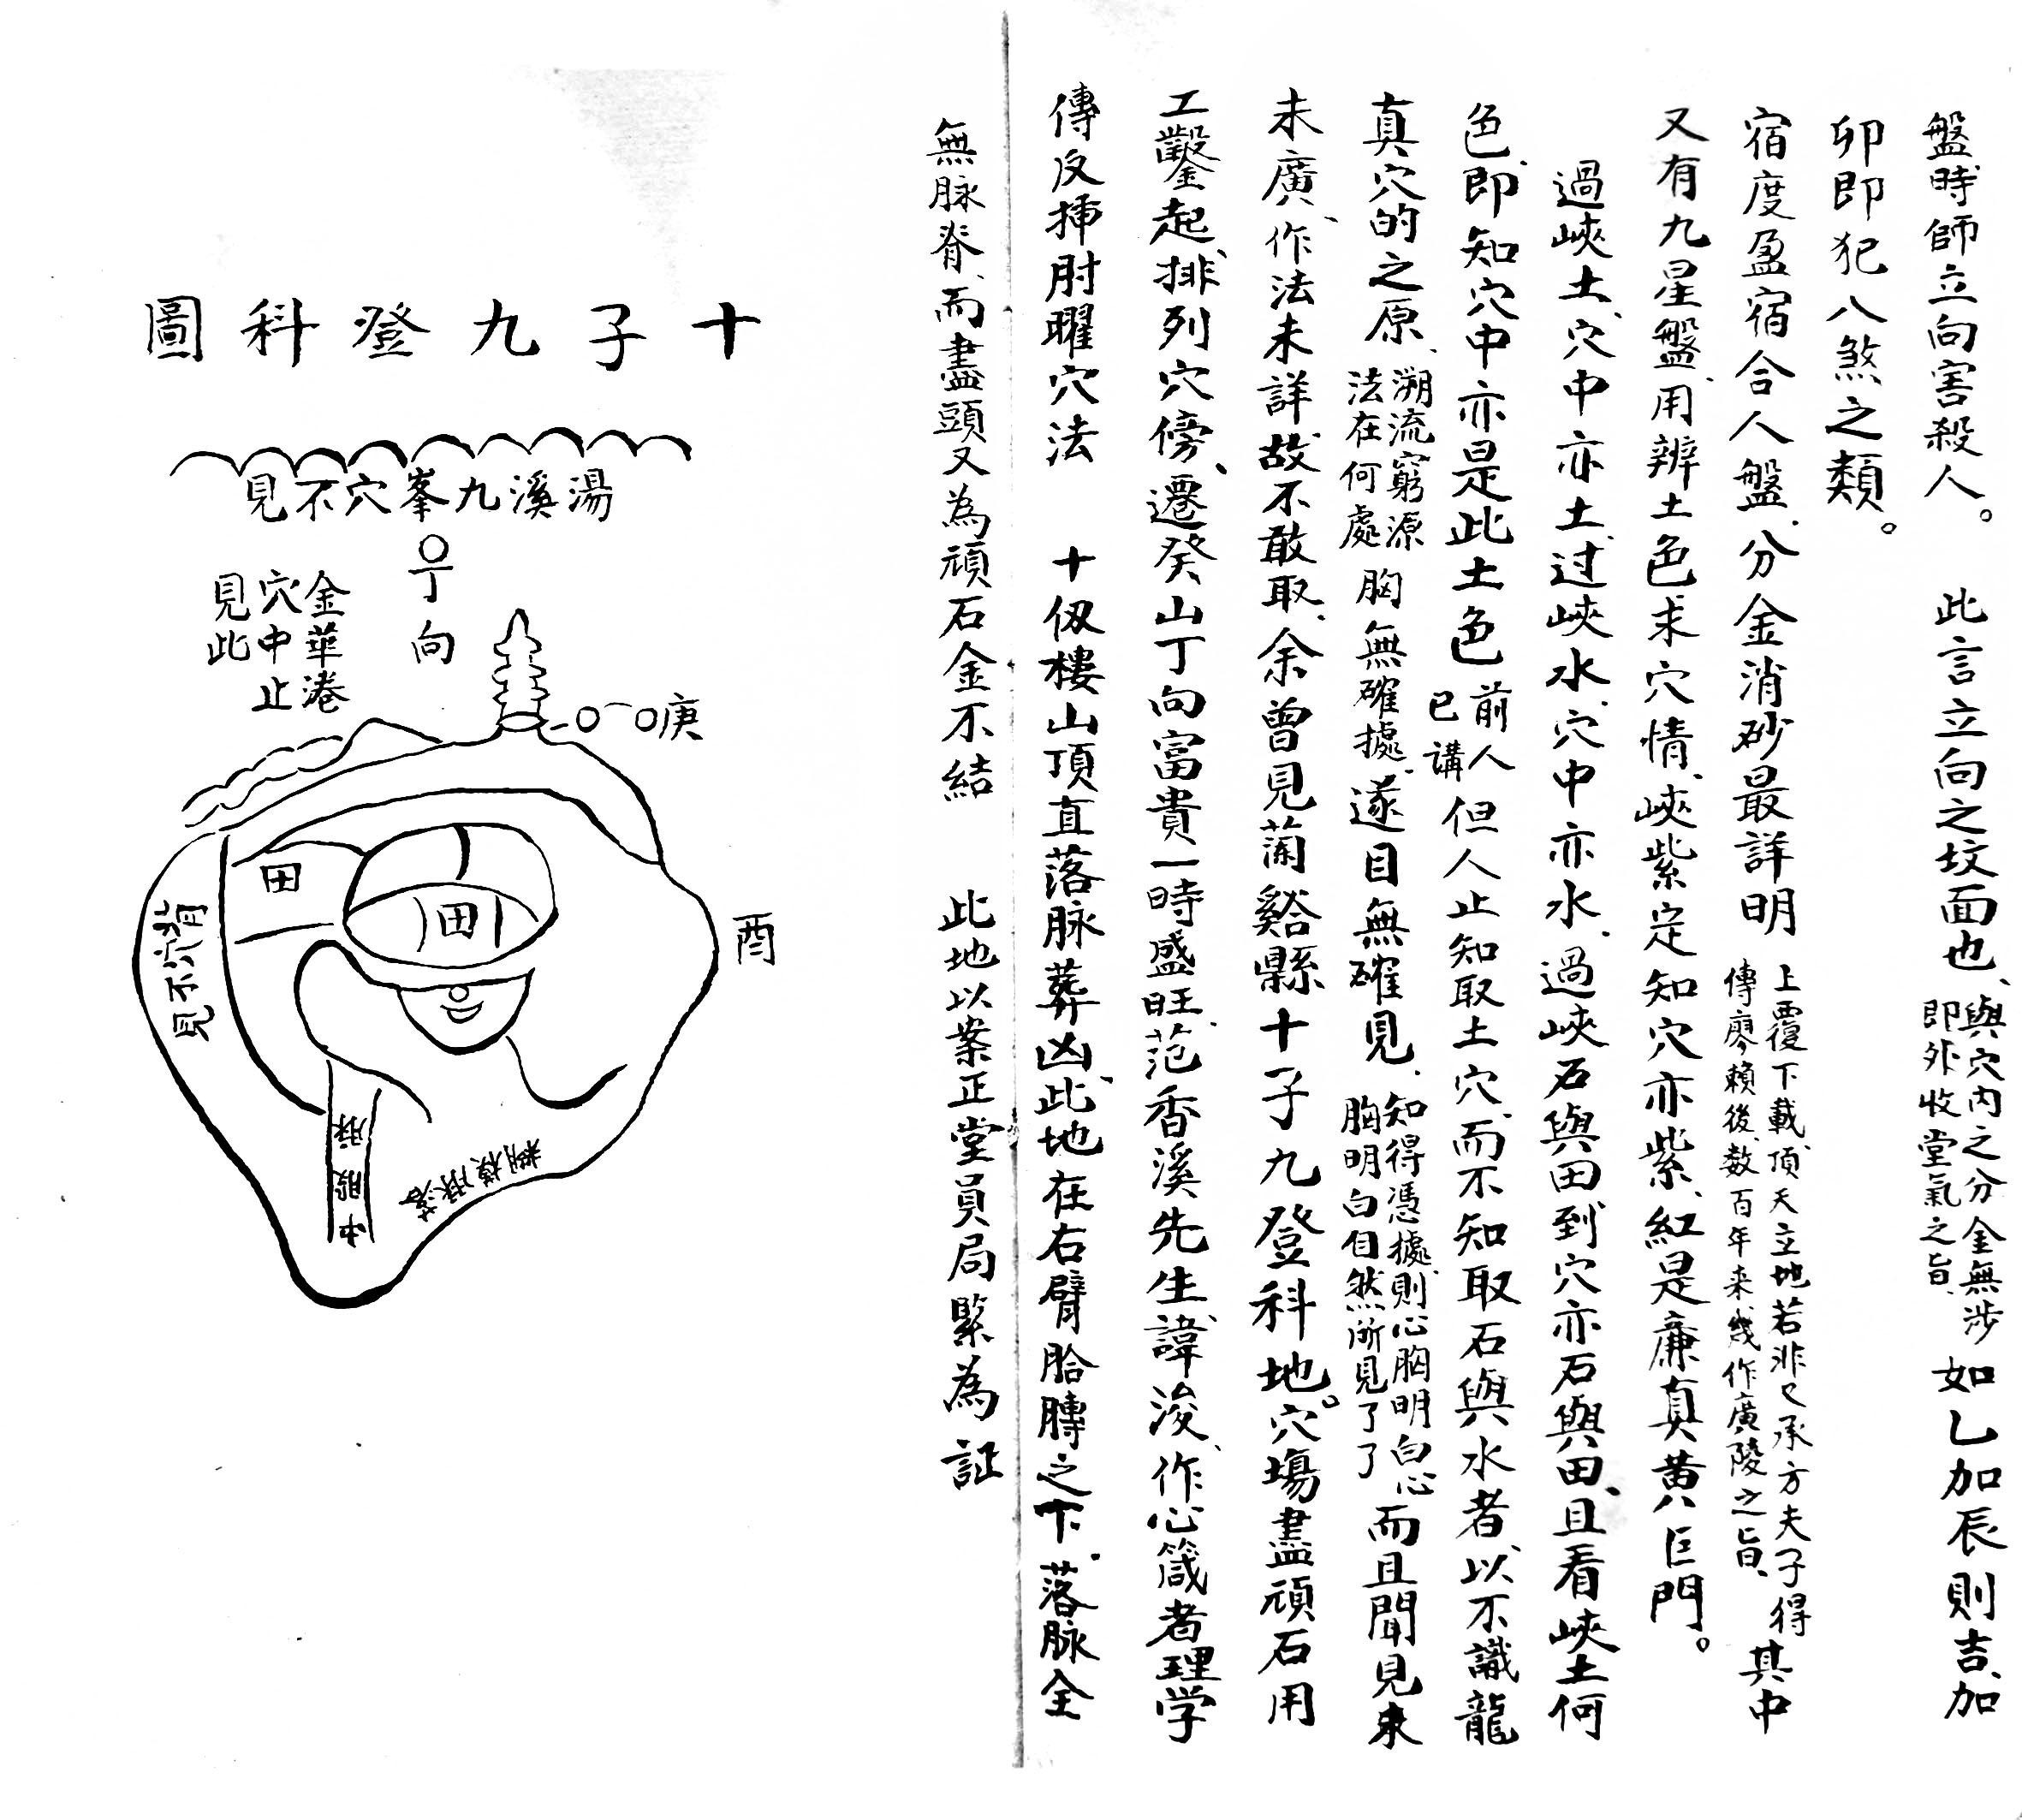 盤時師立向害殺人。　此言立向之坟面也、與穴內之分金無涉即外收堂氣之旨、如乙加辰則吉、加
卯即犯八煞之類。
宿度盈宿合人盤、分金消砂最詳明　上覆下載、頂天立地若非乂承方夫子得傳廖賴後、数百年来幾作廣陵之旨、其中
又有九星盤、用辨土色求穴情、峽紫定知穴亦紫、紅是廉真黄巨門。
過峽土、穴中亦土、过峽水、穴中亦水、過峽石與田、到穴亦石與田、且看峽土何
色、即知穴中亦是此土色　前人已講　但人止知取土穴、而不知取石與水者、以不識龍
真穴的之原、溯流窮源法在何處　胸無確據、遂目無確見、知得憑據、則心胸明白心胸明白自然所見了了　而且聞見未
未廣、作法未詳、故不敢取、余曾見蘭谿縣十子九登科地。穴塲盡頑石用
工鑿起、排列穴傍、遷癸山丁向富貴一時盛旺、范香溪先生諱浚、作心箴者理学
傳反挿肘曜穴法　十伋樓山頂直落脉葬凶、此地在右臂胎膊之下、落脉全
無脉脊、而盡頭又為頑石金不結　此地以案正堂員局緊為証
十子九登科圖
湯溪九峯穴不見
丁向
金華港
穴中止
見此
庚
酉
田
田
背穴不見
中股脉
落脉模糊